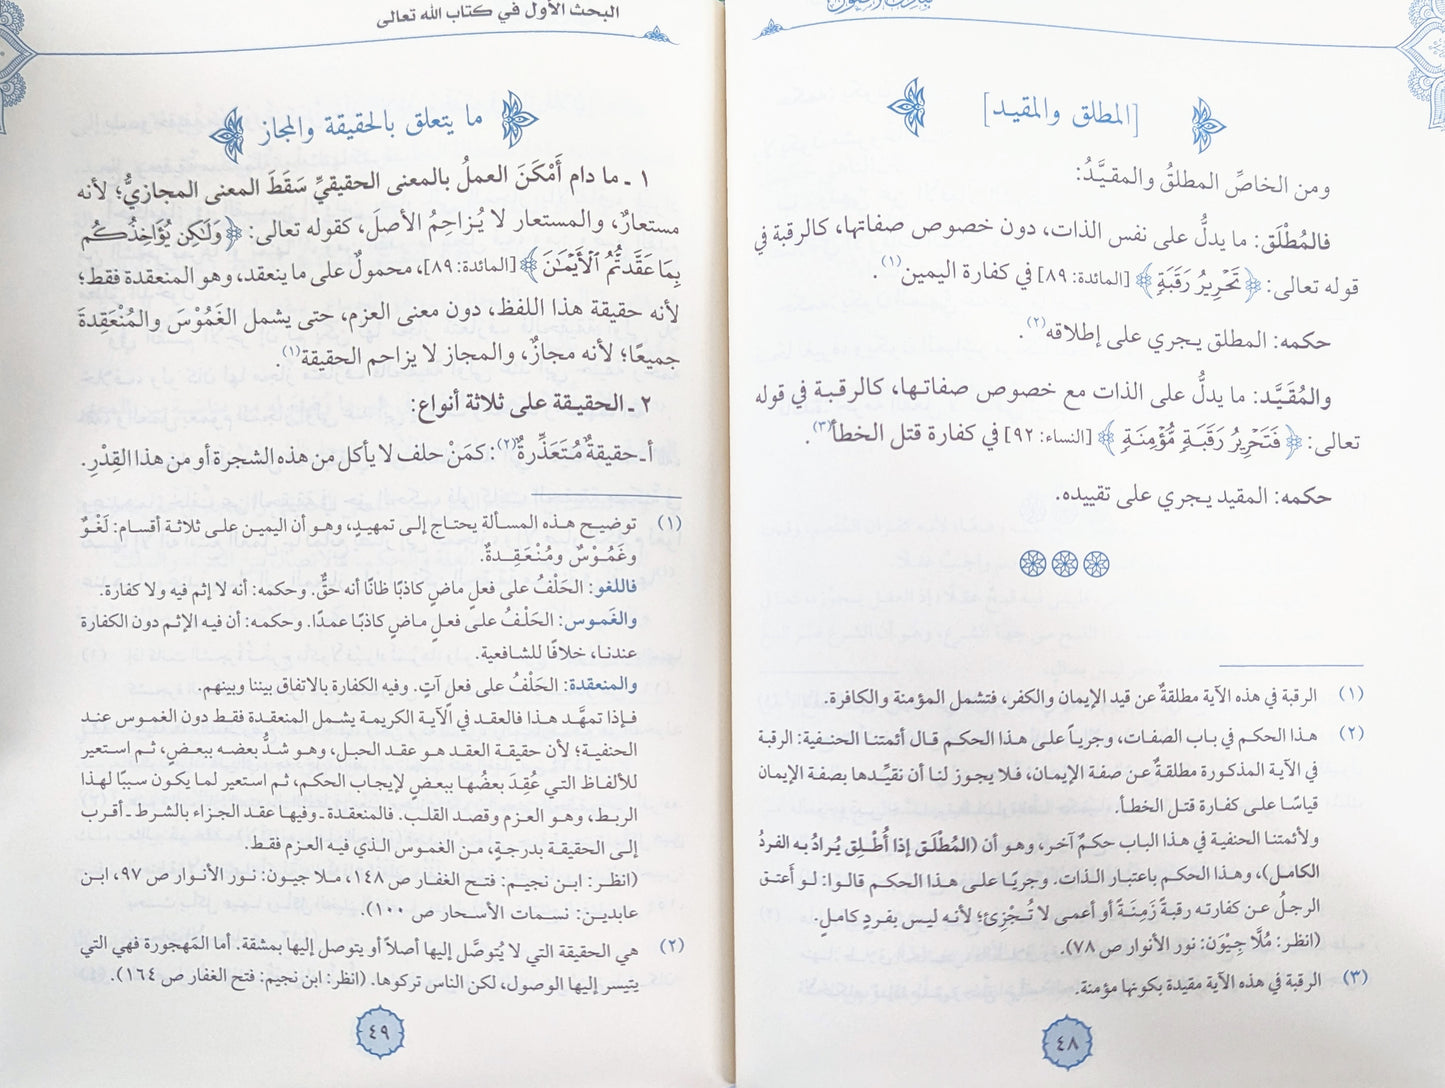 [المطلق والمقيد]
ومن الخاصِّ المطلقُ والمقيَّدُ:
فالمُطْلَق: ما يدلُّ على نفس الذات، دون خصوص صفاتها، كالرقبة في
قوله تعالى: ﴿تَحْرِيرُ رَقَبَةٍ﴾ [المائدة: ٨٩] في كفارة اليمين(١).
حكمه: المطلق يجري على إطلاقه(٢).
والمُقَيَّد: ما يدلُّ على الذات مع خصوص صفاتها، كالرقبة في قوله
تعالى: ﴿فَتَحْرِيرُ رَقَبَةٍ مُّؤْمِنَةٍ﴾ [النساء: ٩٢] في كفارة قتل الخطأ(٣).
حكمه: المقيد يجري على تقييده.
(١) الرقبة في هذه الآية مطلقةٌ عن قيد الإيمان والكفر، فتشمل المؤمنة والكافرة.
(٢) هذا الحكم في باب الصفات، وجرياً على هذا الحكم قال أئمتنا الحنفية: الرقبة
في الآية المذكورة مطلقةٌ عن صفة الإيمان، فلا يجوز لنا أن نقيِّدها بصفة الإيمان
قياسًا على كفارة قتل الخطأ.
ولأئمتنا الحنفية في هذا الباب حكمٌ آخر، وهو أن (المُطْلَق إذا أُطْلِق يُرادُ به الفردُ
الكامل)، وهذا الحكم باعتبار الذات. وجريًا على هذا الحكم قالوا: لو أعتق
الرجلُ عن كفارته رقبةً زَمِنَةً أو أعمى لا تُجْزِئ؛ لأنه ليس بفردٍ كاملٍ.
(انظر: مُلَّا جِيْوَن: نور الأنوار ص ٧٨).
(٣) الرقبة في هذه الآية مقيدة بكونها مؤمنة.
٤٨
البحث الأول في كتاب الله تعالى
ما يتعلق بالحقيقة والمجاز
١ ـ ما دام أَمْكَنَ العملُ بالمعنى الحقيقيِّ سَقَطَ المعنى المجازيُّ؛ لأنه
مستعارٌ، والمستعار لا يُزاحِمُ الأصلَ، كقوله تعالى: ﴿وَلَٰكِن يُؤَاخِذُكُم
بِمَا عَقَّدتُّمُ الْأَيْمَٰنَ﴾ [المائدة: ٨٩]، محمولٌ على ما ينعقد، وهو المنعقدة فقط؛
لأنه حقيقة هذا اللفظ، دون معنى العزم، حتى يشمل الغَمُوْسَ والمُنْعَقِدةَ
جميعًا؛ لأنه مجازٌ، والمجاز لا يزاحم الحقيقة(١).
٢ ـ الحقيقة على ثلاثة أنواع:
أ ـ حقيقةٌ مُتَعَذِّرةٌ(٢): كمَنْ حلف لا يأكل من هذه الشجرة أو من هذا القِدْرِ.
(١) توضيح هذه المسألة يحتاج إلى تمهيدٍ، وهو أن اليمين على ثلاثة أقسام: لَغْوٌ
وغَمُوْسٌ ومُنْعَقِدةٌ.
فاللغو: الحَلْفُ على فعلٍ ماضٍ كاذبًا ظانًا أنه حقٌّ. وحكمه: أنه لا إثم فيه ولا كفارة.
والغَموس: الحَلْفُ على فعلٍ ماضٍ كاذبًا عمدًا. وحكمه: أن فيه الإثم دون الكفارة
عندنا، خلافًا للشافعية.
والمنعقدة: الحَلْفُ على فعلٍ آتٍ. وفيه الكفارة بالاتفاق بيننا وبينهم.
فإذا تمهَّد هذا فالعقد في الآية الكريمة يشمل المنعقدة فقط دون الغموس عند
الحنفية؛ لأن حقيقة العقد هو عقد الحبل، وهو شدُّ بعضه ببعضٍ، ثم استعير
للألفاظ التي عُقِدَ بعضُها ببعضٍ لإيجاب الحكم، ثم استعير لما يكون سببًا لهذا
الربط، وهو العزم وقصد القلب. فالمنعقدة ـ وفيها عقد الجزاء بالشرط ـ أقرب
إلى الحقيقة بدرجةٍ، من الغموس الذي فيه العزم فقط.
(انظر: ابن نجيم: فتح الغفار ص ١٤٨، ملا جيون: نور الأنوار ص ٩٧، ابن
عابدين: نسمات الأسحار ص ١٠٠).
(٢) هي الحقيقة التي لا يُتوصَّل إليها أصلاً أو يتوصل إليها بمشقة. أما المهجورة فهي التي
يتيسر إليها الوصول، لكن الناس تركوها. (انظر: ابن نجيم: فتح الغفار ص ١٦٤).
٤٩